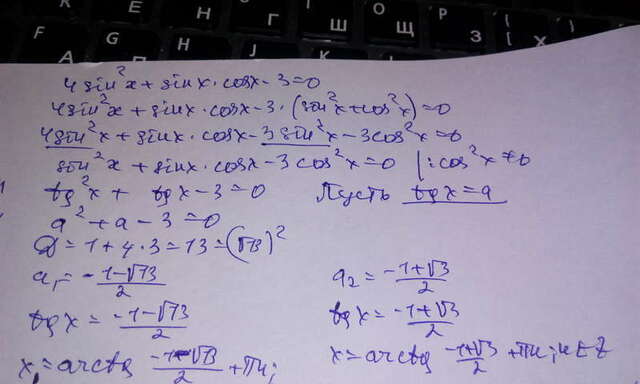 К Е Н Г Ш Щ З
F G H J K L P
А П Р О Л
4sin²x + sinx · cosx - 3 = 0
4sin²x + sinx · cosx - 3 · (sin²x + cos²x) = 0
4sin²x + sinx · cosx - 3sin²x - 3cos²x = 0
sin²x + sinx · cosx - 3cos²x = 0 | : cos²x ≠ 0
tg²x + tgx - 3 = 0 Пусть tgx = a
a² + a - 3 = 0
D = 1 + 4 · 3 = 13 = (√13)²
a₁ = (-1-√13)/2 a₂ = (-1+√3)/2
tgx = (-1-√13)/2 tgx = (-1+√3)/2
x₁ = arctg (-1-√13)/2 + πn; x = arctg (-1+√3)/2 + πn; n ∈ Z